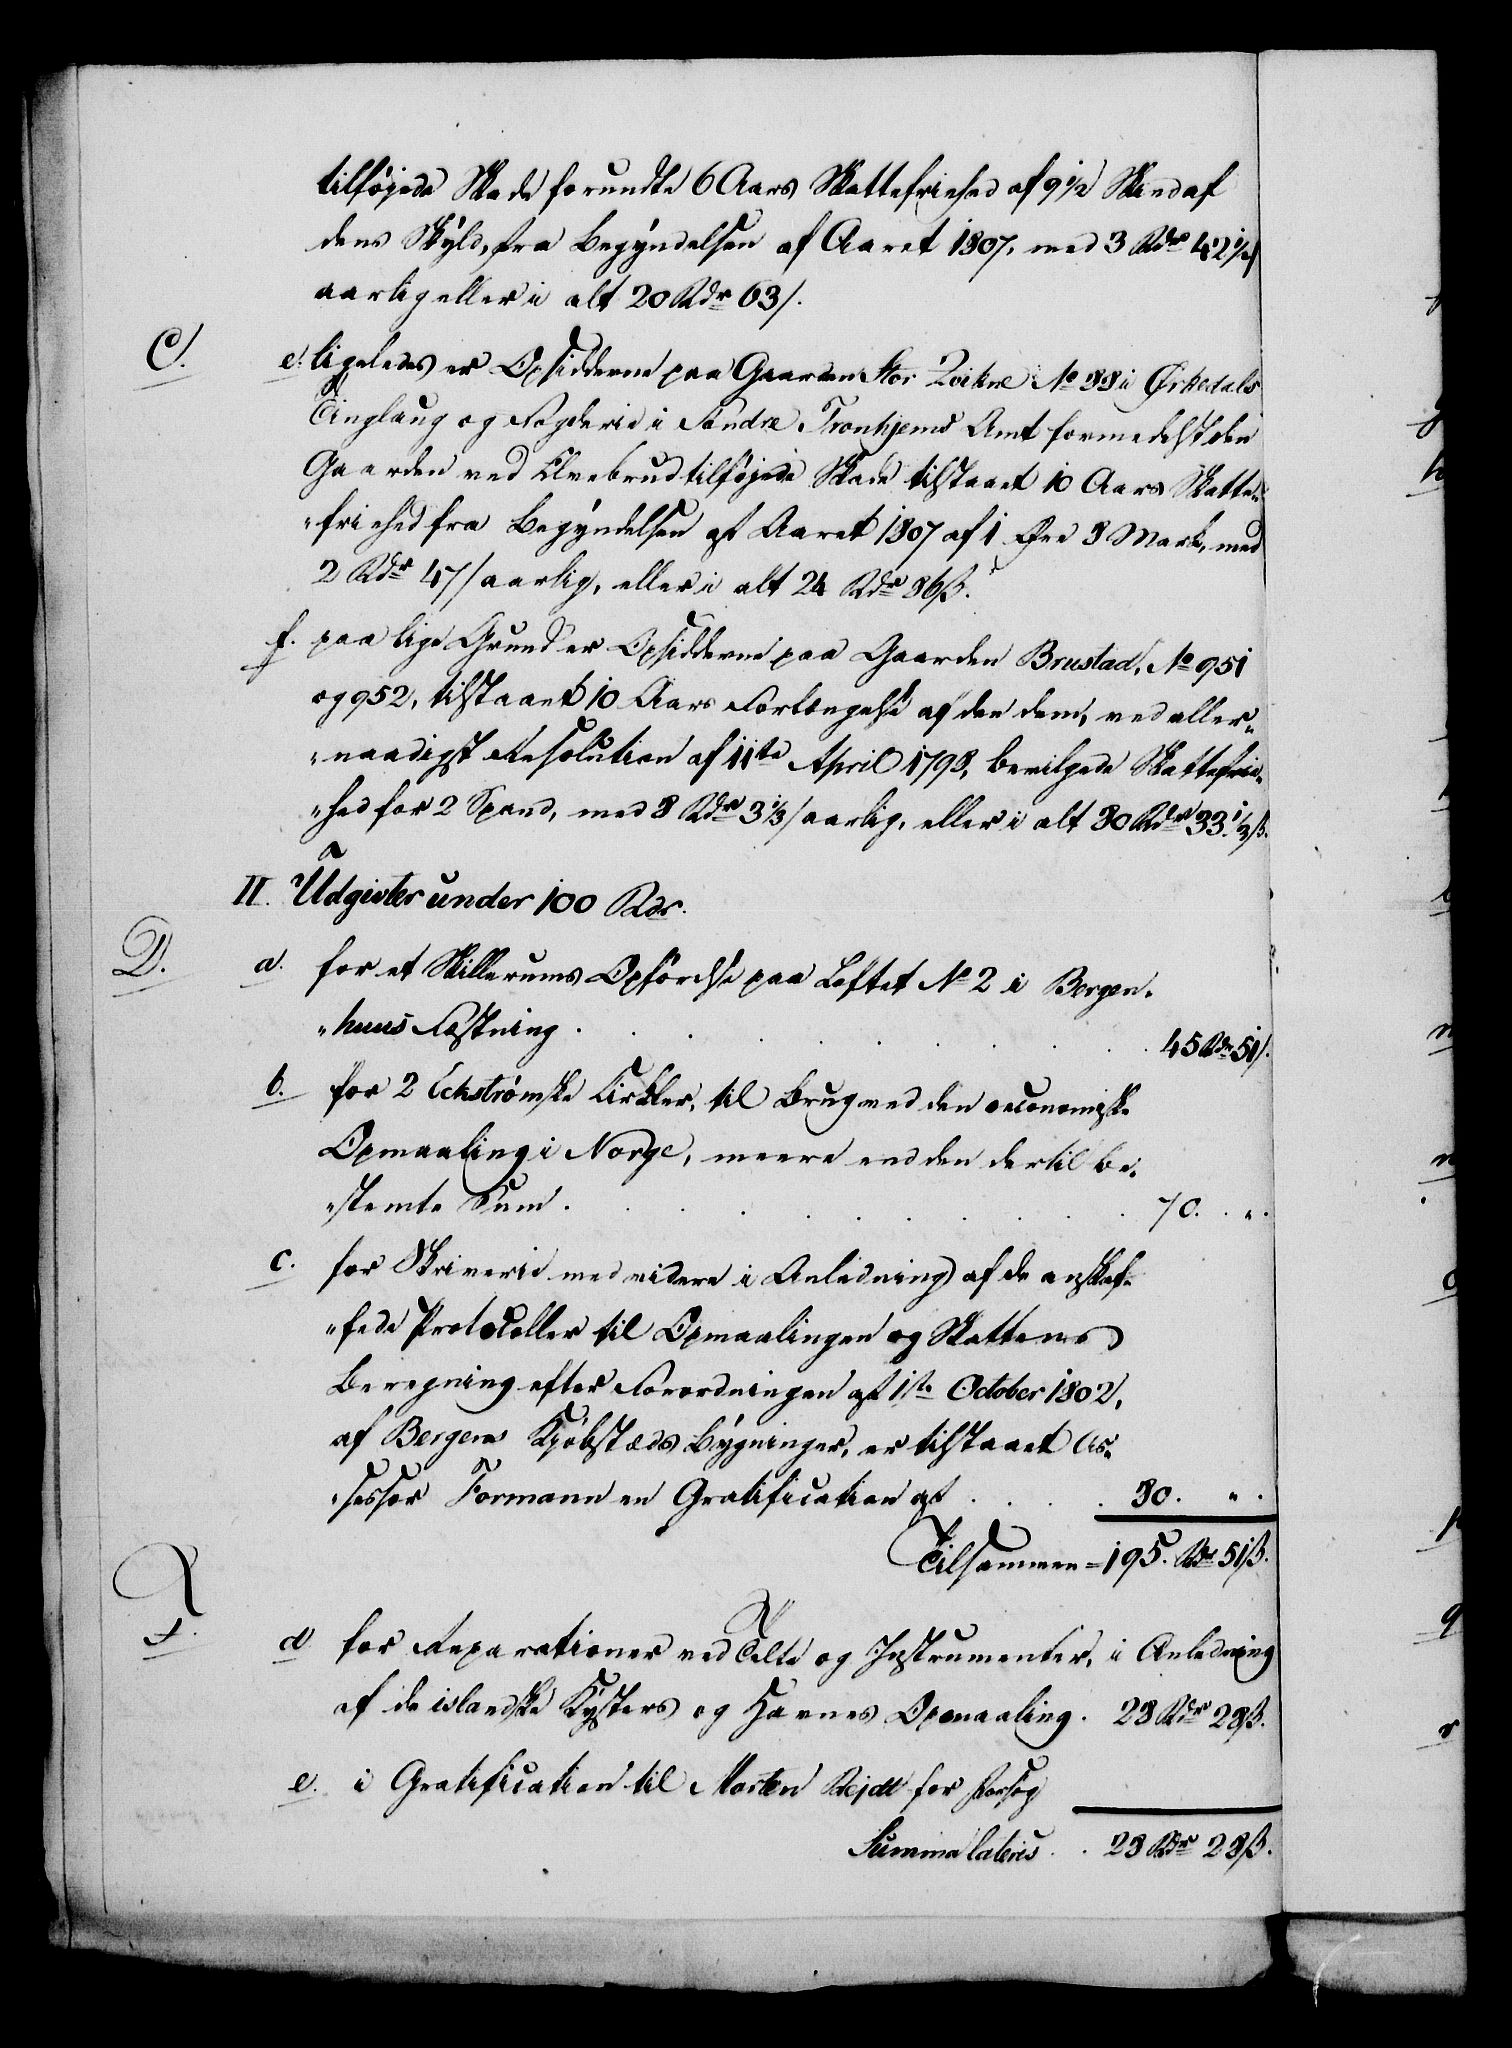 tilføjede Skade forundte 6 Aars Skattefriehed af 9 1/2 Skind af
dens Skyld, fra Begyndelsen af Aaret 1807, med 3 Rdr 42 1/2 /
aarlig eller i alt 20 Rdr 63/.
C. e. ligeledes er Opsidderne paa Gaarden Stor No 88 i Ørkedals
Tinglaug og Fogderie i Søndre Tronhjems Amt formedelst den
Gaarden ved Elvebrud tilføjede Skade tilstaaet 10 Aars Skatte„
„friehed fra Begyndelsen af Aaret 1807 af 1 Øre 8 Mark, med
2 Rdr 47/ aarlig, eller i alt 24 Rdr 86ß.
f. paa lige Grund er Opsidderne paa Gaarden Brustad, No 951
og 952, tilstaaet 10 Aars Forlængelse af den dem, ved aller„
„naadigst Resolution af 11te April 1798, bevilgede Skattefrie„
„hed for 2 Spand, med 8 Rdr 3 1/3/ aarlig, eller i alt 80 Rdr 33 1/3ß.
II. Udgivter under 100 Rdr.
D. a. for et Skillerums Opførelse paa Loftet No 2 i Bergen„
„huus Fæstning . . . . . . . . . 45 Rdr 51/.
b. for 2 Eckstrømske Cirkler, til Brug ved den oeconomiske
Opmaaling i Norge, meere end den dertil be„
„stemte Sum . . . . . . . . . 70. . „.
c. for Skriverie med videre i Anledning af de anskaf„
„fede Protocoller til Opmaalingen og Skattens
Beregning efter Forordningen af 1ste October 1802,
af Bergens Kjøbstæds Bygninger, er tilstaaet As„
„sessor Formann en Gratification af . . . . 80. „ .
Tilsammen = 195. Rdr 51ß.
F. d. for Reparationer ved Telte og Instrumenter, i Anledning
af de islandske Kysters og Havnes Opmaaling . 28 Rdr 28ß.
e. i Gratification til Morten for Forsøg
Summa lateris . . 28 Rdr 28ß.